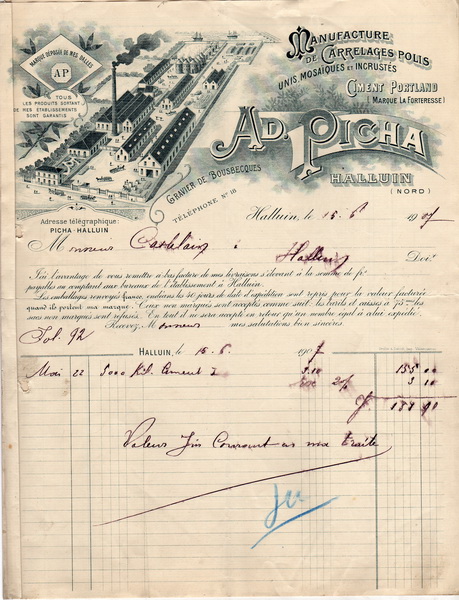 MARQUE DÉPOSÉE DE MES DALLES
AP
TOUS
LES PRODUITS SORTANT
DE MES ÉTABLISSEMENTS
SONT GARANTIS
MANUFACTURE
DE CARRELAGES POLIS
UNIS, MOSAÏQUES ET INCRUSTÉS
CIMENT PORTLAND
(MARQUE LA FORTERESSE)
AD. PICHA
HALLUIN
(NORD)
GRAVIER DE BOUSBECQUES
TÉLÉPHONE Nº 18
Adresse télégraphique:
PICHA-HALLUIN
Halluin, le 15.6 1907
Monsieur Castelain à Halluin Doit
J'ai l'avantage de vous remettre ci-bas facture de mes livraisons s'élevant à la somme de fr.
payables au comptant aux bureaux de l'établissement à Halluin.
Les emballages renvoyés franco, endéans les 40 jours de date d'expédition sont repris pour la valeur facturée
quand ils portent ma marque.
sacs non marqués sont refusés. En tout il ne sera accepté en retour qu'un nombre égal à celui expédié.
Recevez, Monsieur mes salutations bien sincères.
Fol. 92
HALLUIN, le 15.6 1907
Mai 22 5000 Kil. Ciment 3.10 155 00
2% 3 10
fr. 151 90
Valeur fin Courant en ma traite